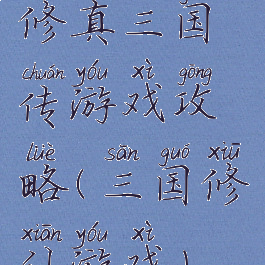 修真三国
chuán yóu xì gōng
传游戏攻
lüè sān guó xiū
略(三国修
xiān yóu xì
仙游戏)